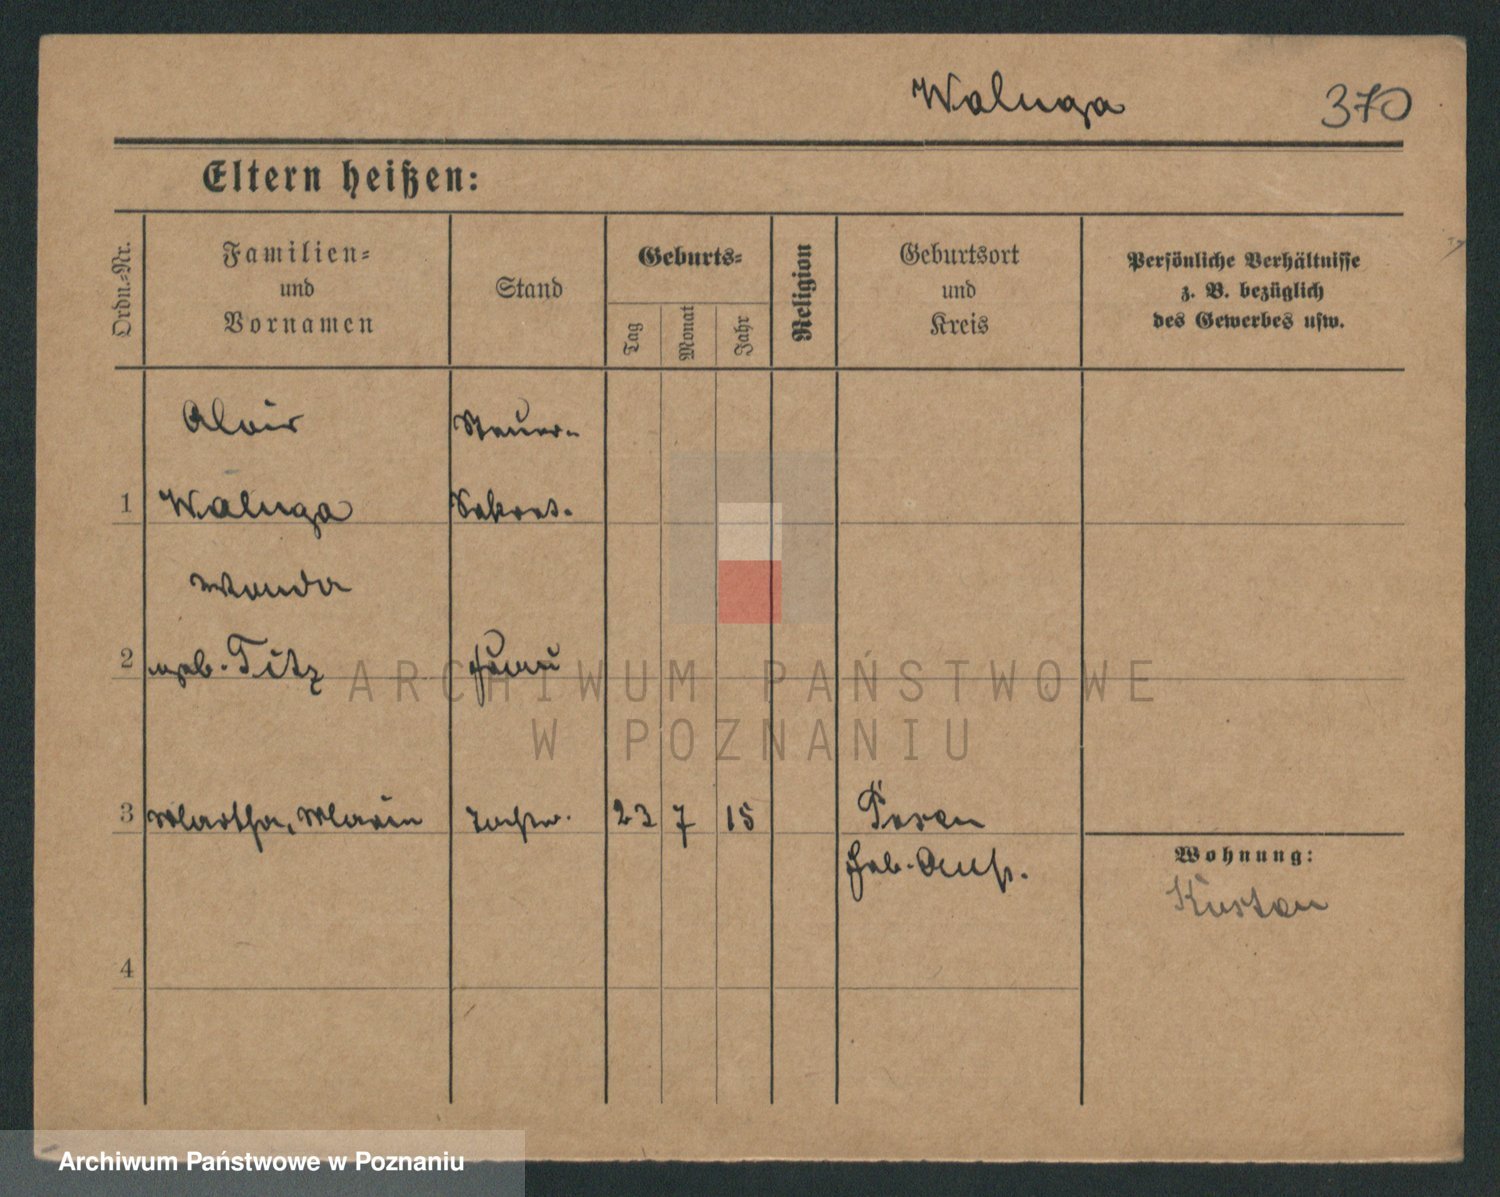 Waluga 370
Eltern heißen:
Ordn.-Nr.
Familien-
und
Vornamen
Stand
Geburts-
Tag
Monat
Jahr
Religion
Geburtsort
und
Kreis
Persönliche Verhältnisse
z. B. bezüglich
des Gewerbes usw.
Alois Steuer-
1 Waluga Sekret.
Wanda
2 geb. Titz Frau
3 Martha, Maria Tochter 23 7 15 Posen
Heb. Anst.
Wohnung:
4
ARCHIWUM PAŃSTWOWE
W POZNANIU
Archiwum Państwowe w Poznaniu